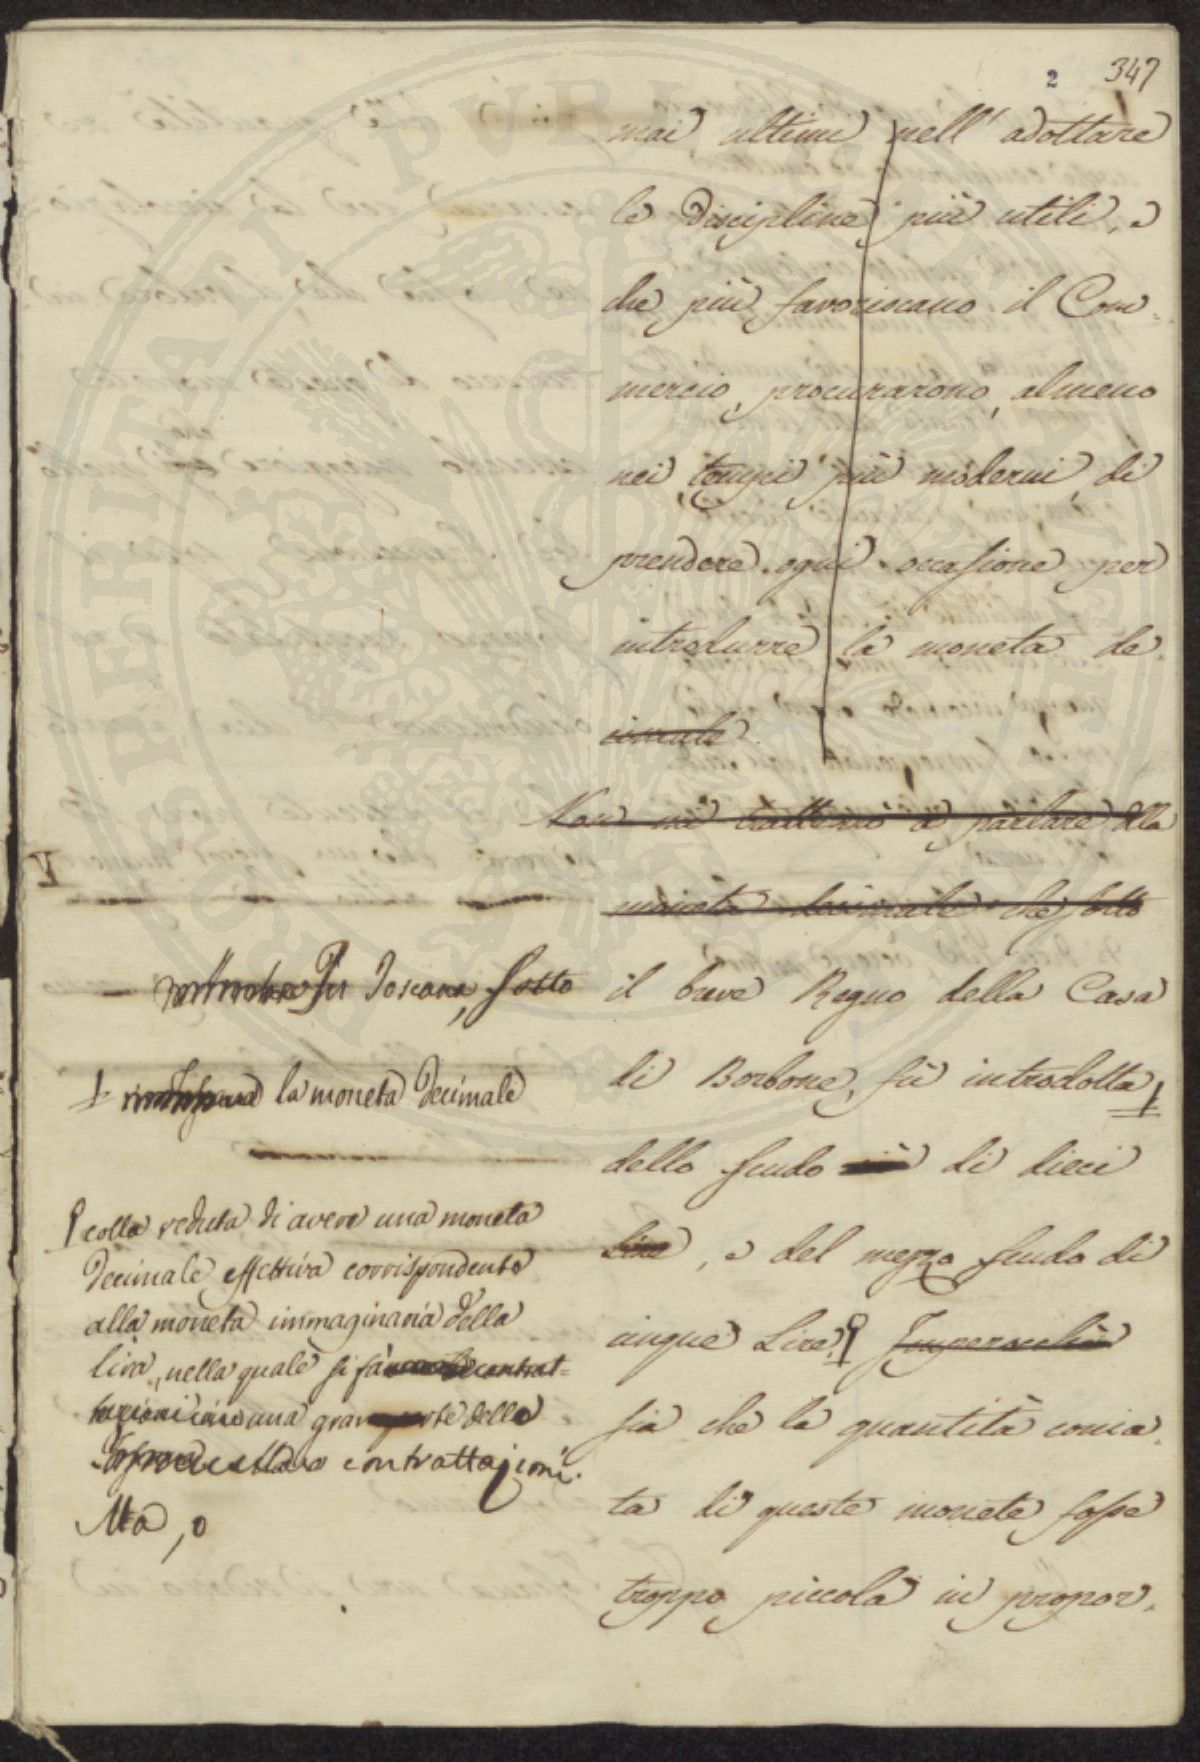 2 347
mai ultimi nell' adottare
le discipline più utili, e
che più favoriscano il Com-
mercio, procurarono, almeno
nei tempi più moderni, di
prendere ogni occasione per
introdurre la moneta de
cimale.
Non mi tratterrò a parlare della
moneta decimale che sotto
in Toscana, sotto
il breve Regno della Casa
di Borbone, fù introdotta
la moneta decimale
dello scudo di dieci
Lire, e del mezzo scudo di
cinque Lire.
colla veduta di avere una moneta
decimale effettiva corrispondente
alla moneta immaginaria della
lira, nella quale si fà contrat-
tazioni una gran parte delle
contrattazioni.
Ma, o
sia che la quantità conia
ta di queste monete fosse
troppo piccola in propor-
PROSPERITATI PUBLICAE